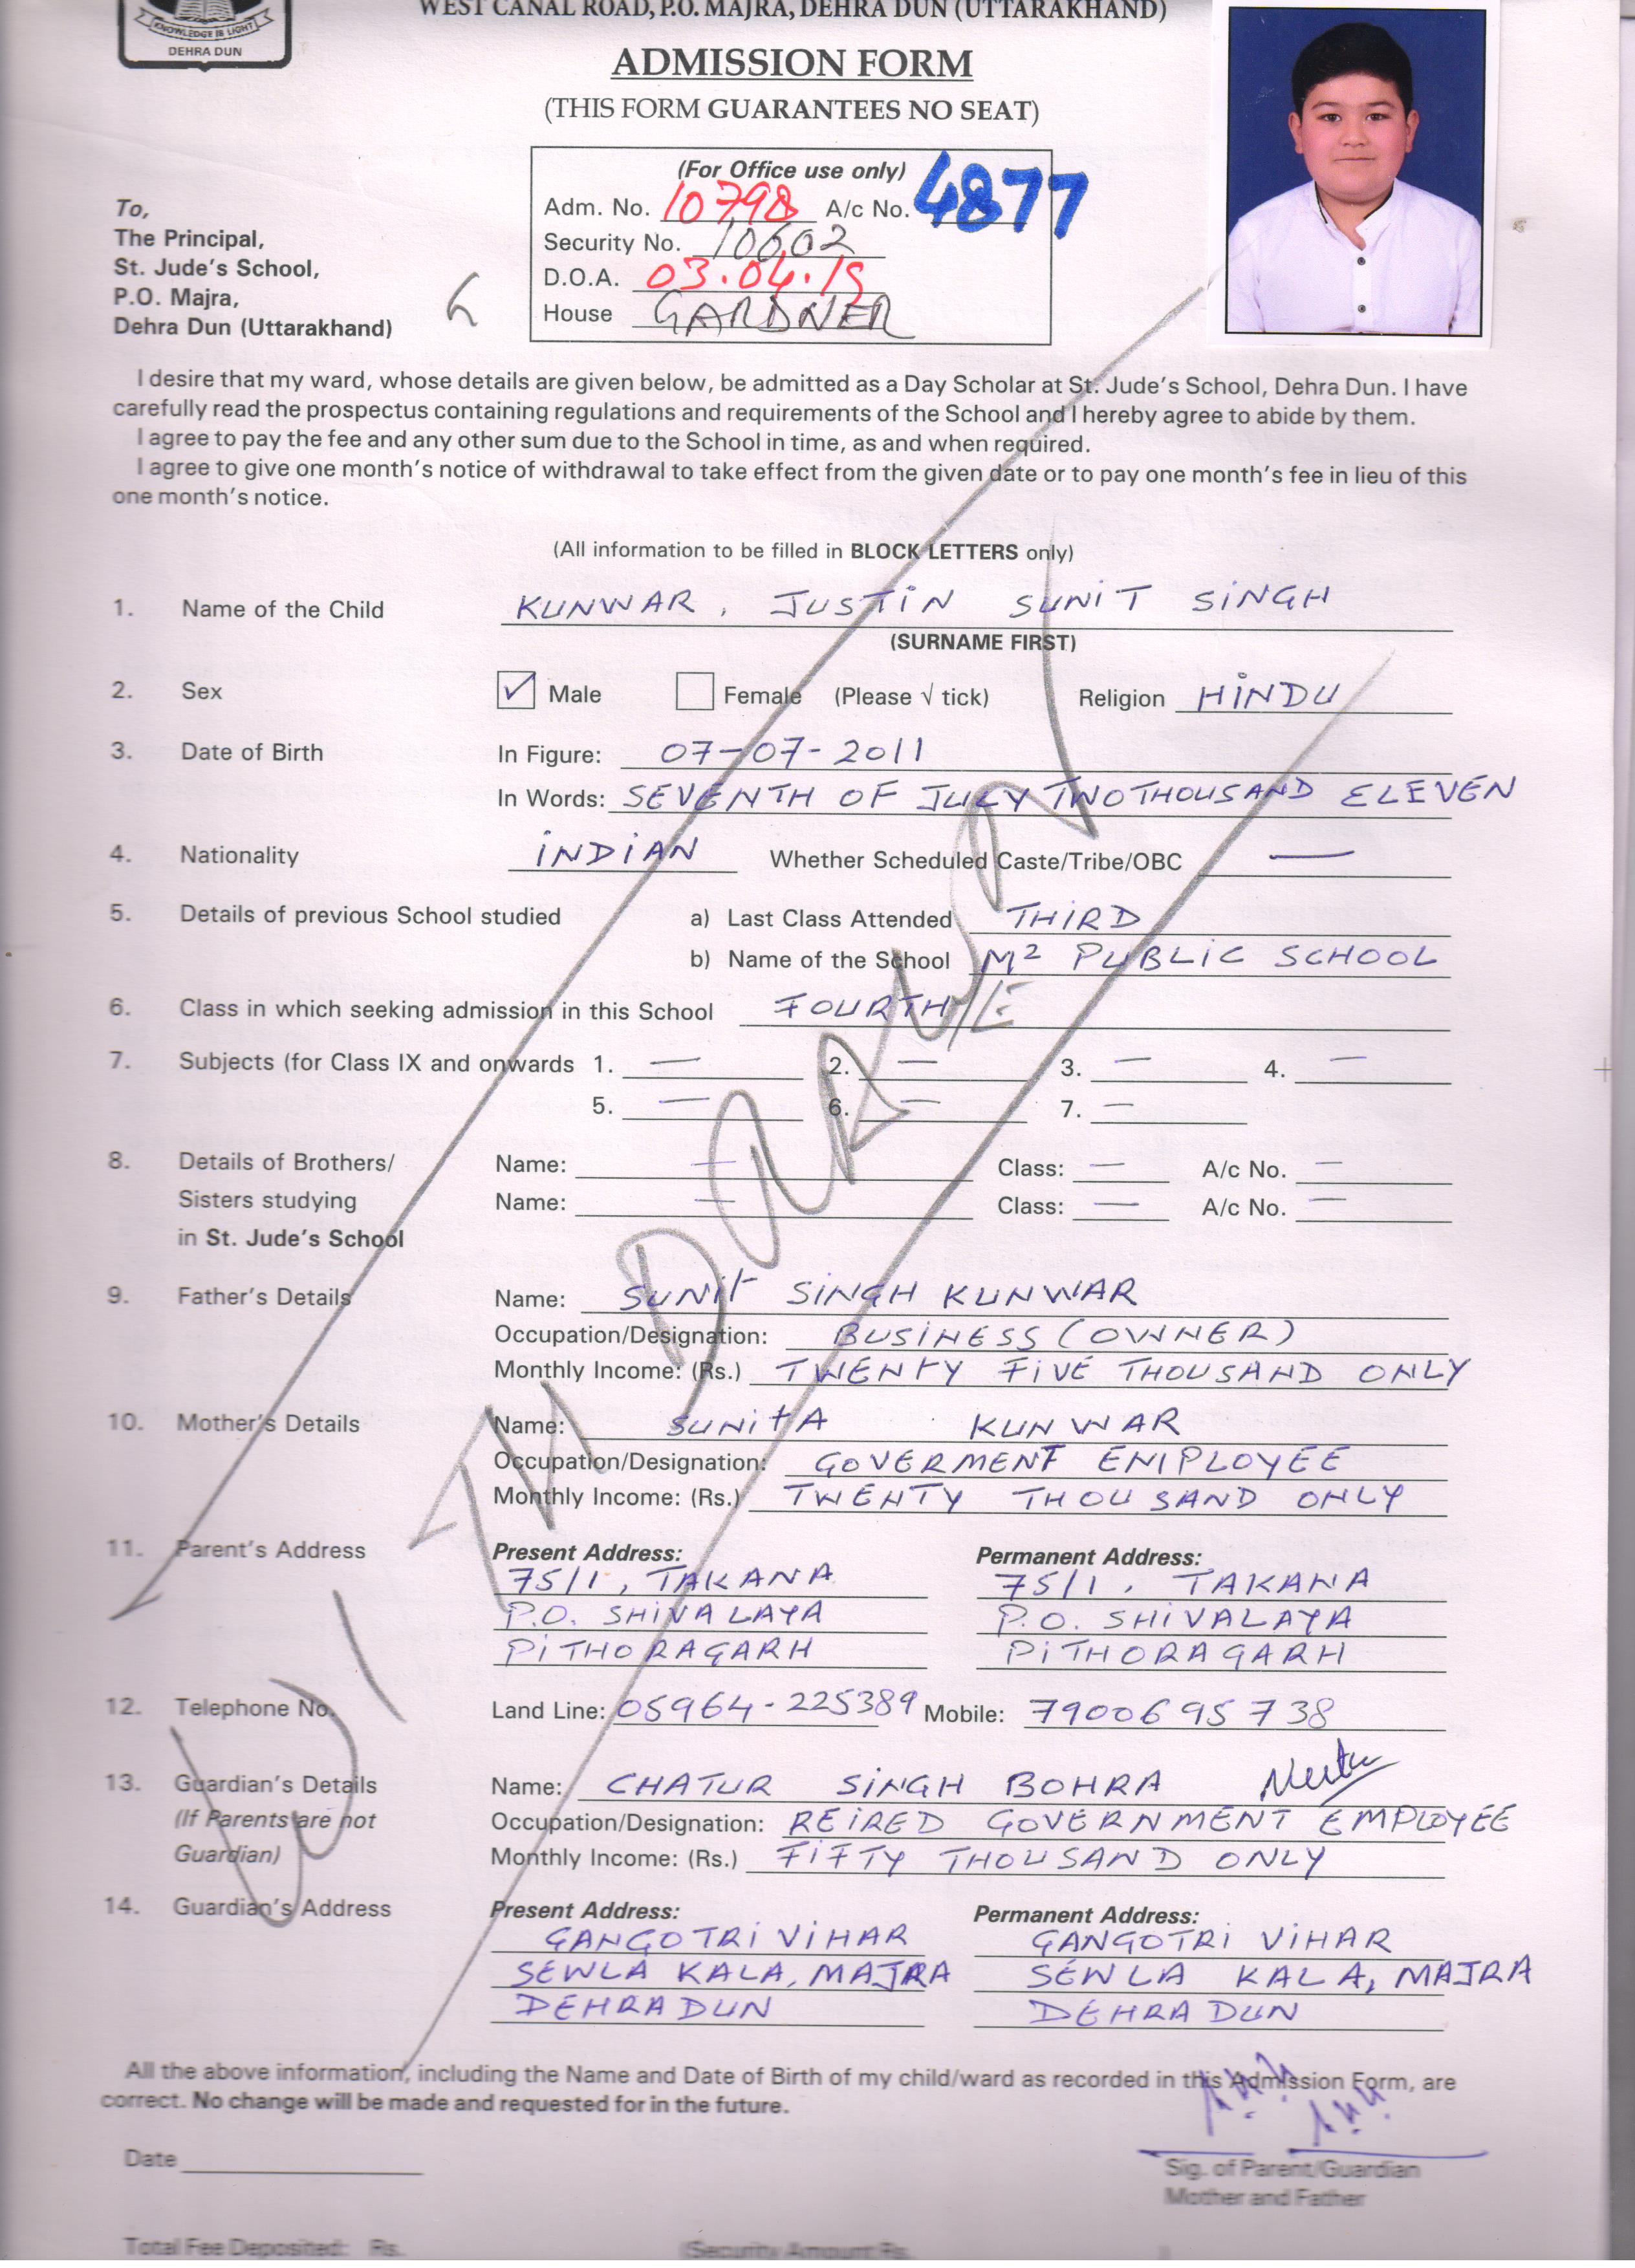 WEST CANAL ROAD, P.O. MAJRA, DEHRA DUN (UTTARAKHAND)
KNOWLEDGE IS LIGHT
DEHRA DUN
ADMISSION FORM
(THIS FORM GUARANTEES NO SEAT)
(For Office use only)
Adm. No. 10798 A/c No. 4877
Security No. 10602
D.O.A. 03.04.19
House GARDNER
To,
The Principal,
St. Jude's School,
P.O. Majra,
Dehra Dun (Uttarakhand)
I desire that my ward, whose details are given below, be admitted as a Day Scholar at St. Jude's School, Dehra Dun. I have
carefully read the prospectus containing regulations and requirements of the School and I hereby agree to abide by them.
I agree to pay the fee and any other sum due to the School in time, as and when required.
I agree to give one month's notice of withdrawal to take effect from the given date or to pay one month's fee in lieu of this
one month's notice.
(All information to be filled in BLOCK LETTERS only)
1. Name of the Child KUNWAR, JUSTIN SUNIT SINGH
(SURNAME FIRST)
2. Sex ✓ Male Female (Please √ tick) Religion HINDU
3. Date of Birth In Figure: 07-07-2011
In Words: SEVENTH OF JULY TWOTHOUSAND ELEVEN
4. Nationality INDIAN Whether Scheduled Caste/Tribe/OBC —
5. Details of previous School studied a) Last Class Attended THIRD
b) Name of the School M2 PUBLIC SCHOOL
6. Class in which seeking admission in this School FOURTH/E
7. Subjects (for Class IX and onwards 1. — 2. — 3. — 4. —
5. — 6. — 7. —
8. Details of Brothers/ Name: — Class: — A/c No. —
Sisters studying Name: — Class: — A/c No. —
in St. Jude's School
9. Father's Details Name: SUNIT SINGH KUNWAR
Occupation/Designation: BUSINESS (OWNER)
Monthly Income: (Rs.) TWENTY FIVE THOUSAND ONLY
10. Mother's Details Name: SUNITA KUNWAR
Occupation/Designation: GOVERMENT EMPLOYEE
Monthly Income: (Rs.) TWENTY THOUSAND ONLY
11. Parent's Address Present Address: Permanent Address:
75/1, TAKANA 75/1, TAKANA
P.O. SHIVALAYA P.O. SHIVALAYA
PITHORAGARH PITHORAGARH
12. Telephone No. Land Line: 05964-225389 Mobile: 7900695738
13. Guardian's Details Name: CHATUR SINGH BOHRA
(If Parents are not Occupation/Designation: REIRED GOVERNMENT EMPLOYEE
Guardian) Monthly Income: (Rs.) FIFTY THOUSAND ONLY
14. Guardian's Address Present Address: Permanent Address:
GANGOTRI VIHAR GANGOTRI VIHAR
SEWLA KALA, MAJRA SEWLA KALA, MAJRA
DEHRADUN DEHRADUN
All the above information, including the Name and Date of Birth of my child/ward as recorded in this Admission Form, are
correct. No change will be made and requested for in the future.
Date
Sig. of Parent/Guardian
Mother and Father
Total Fee Deposited: Rs. (Security Amount Rs.